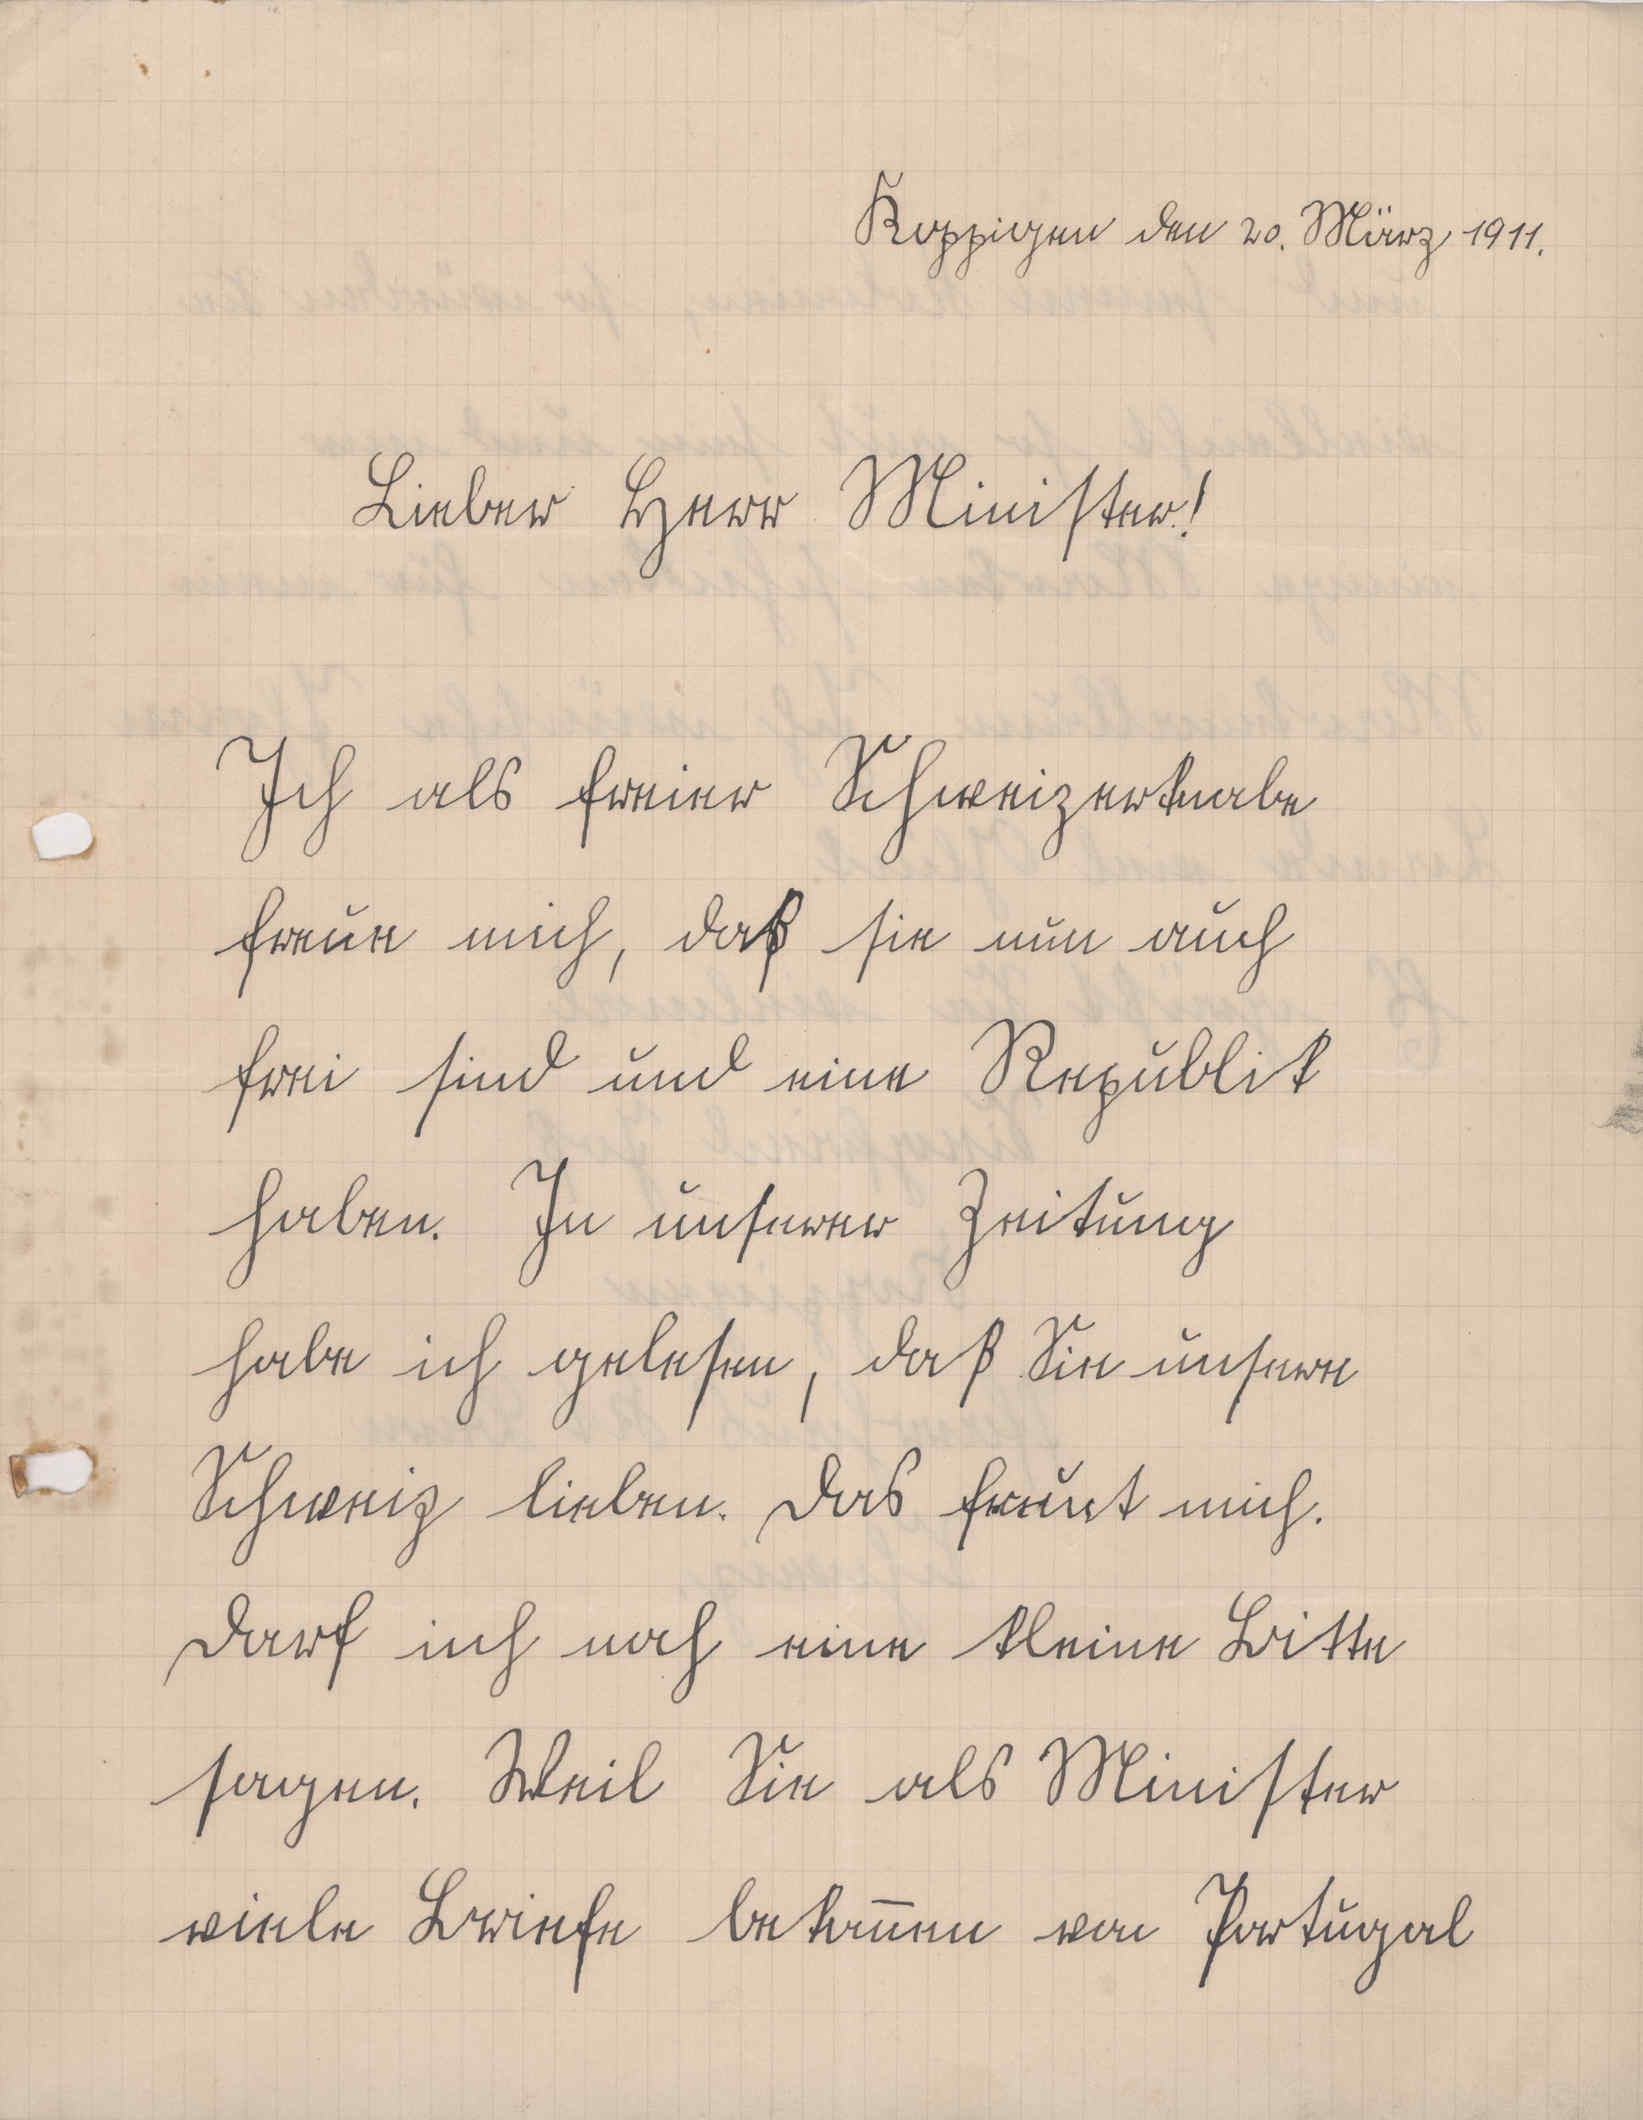 Koppigen den 20. März 1911.
Lieber Herr Minister!
Ich als freier Schweizerknabe
freue mich, daß sie nun auch
frei sind und eine Republik
haben. In unserer Zeitung
habe ich gelesen, daß Sie unsere
Schweiz lieben. Das freut mich.
Darf ich noch eine kleine Bitte
sagen. Weil Sie als Minister
viele Briefe bekom̅en von Portugal